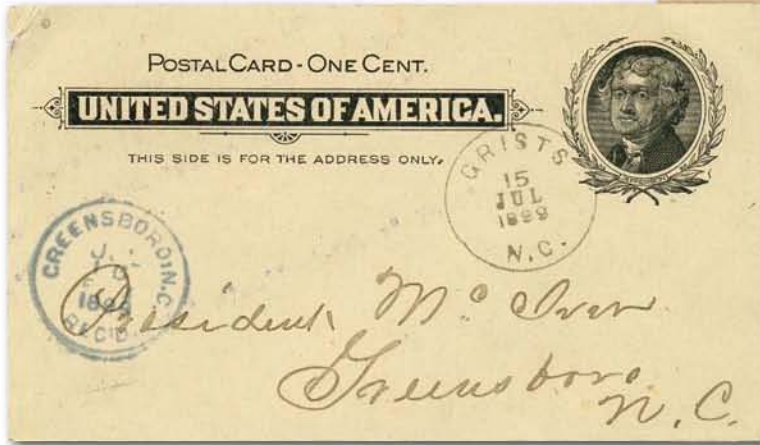 POSTAL CARD - ONE CENT.
UNITED STATES OF AMERICA.
THIS SIDE IS FOR THE ADDRESS ONLY.
GRISTS
15
JUL
1899
N.C.
GREENSBORO, N.C.
REC'D.
President Mc Iver
Greensboro
N. C.